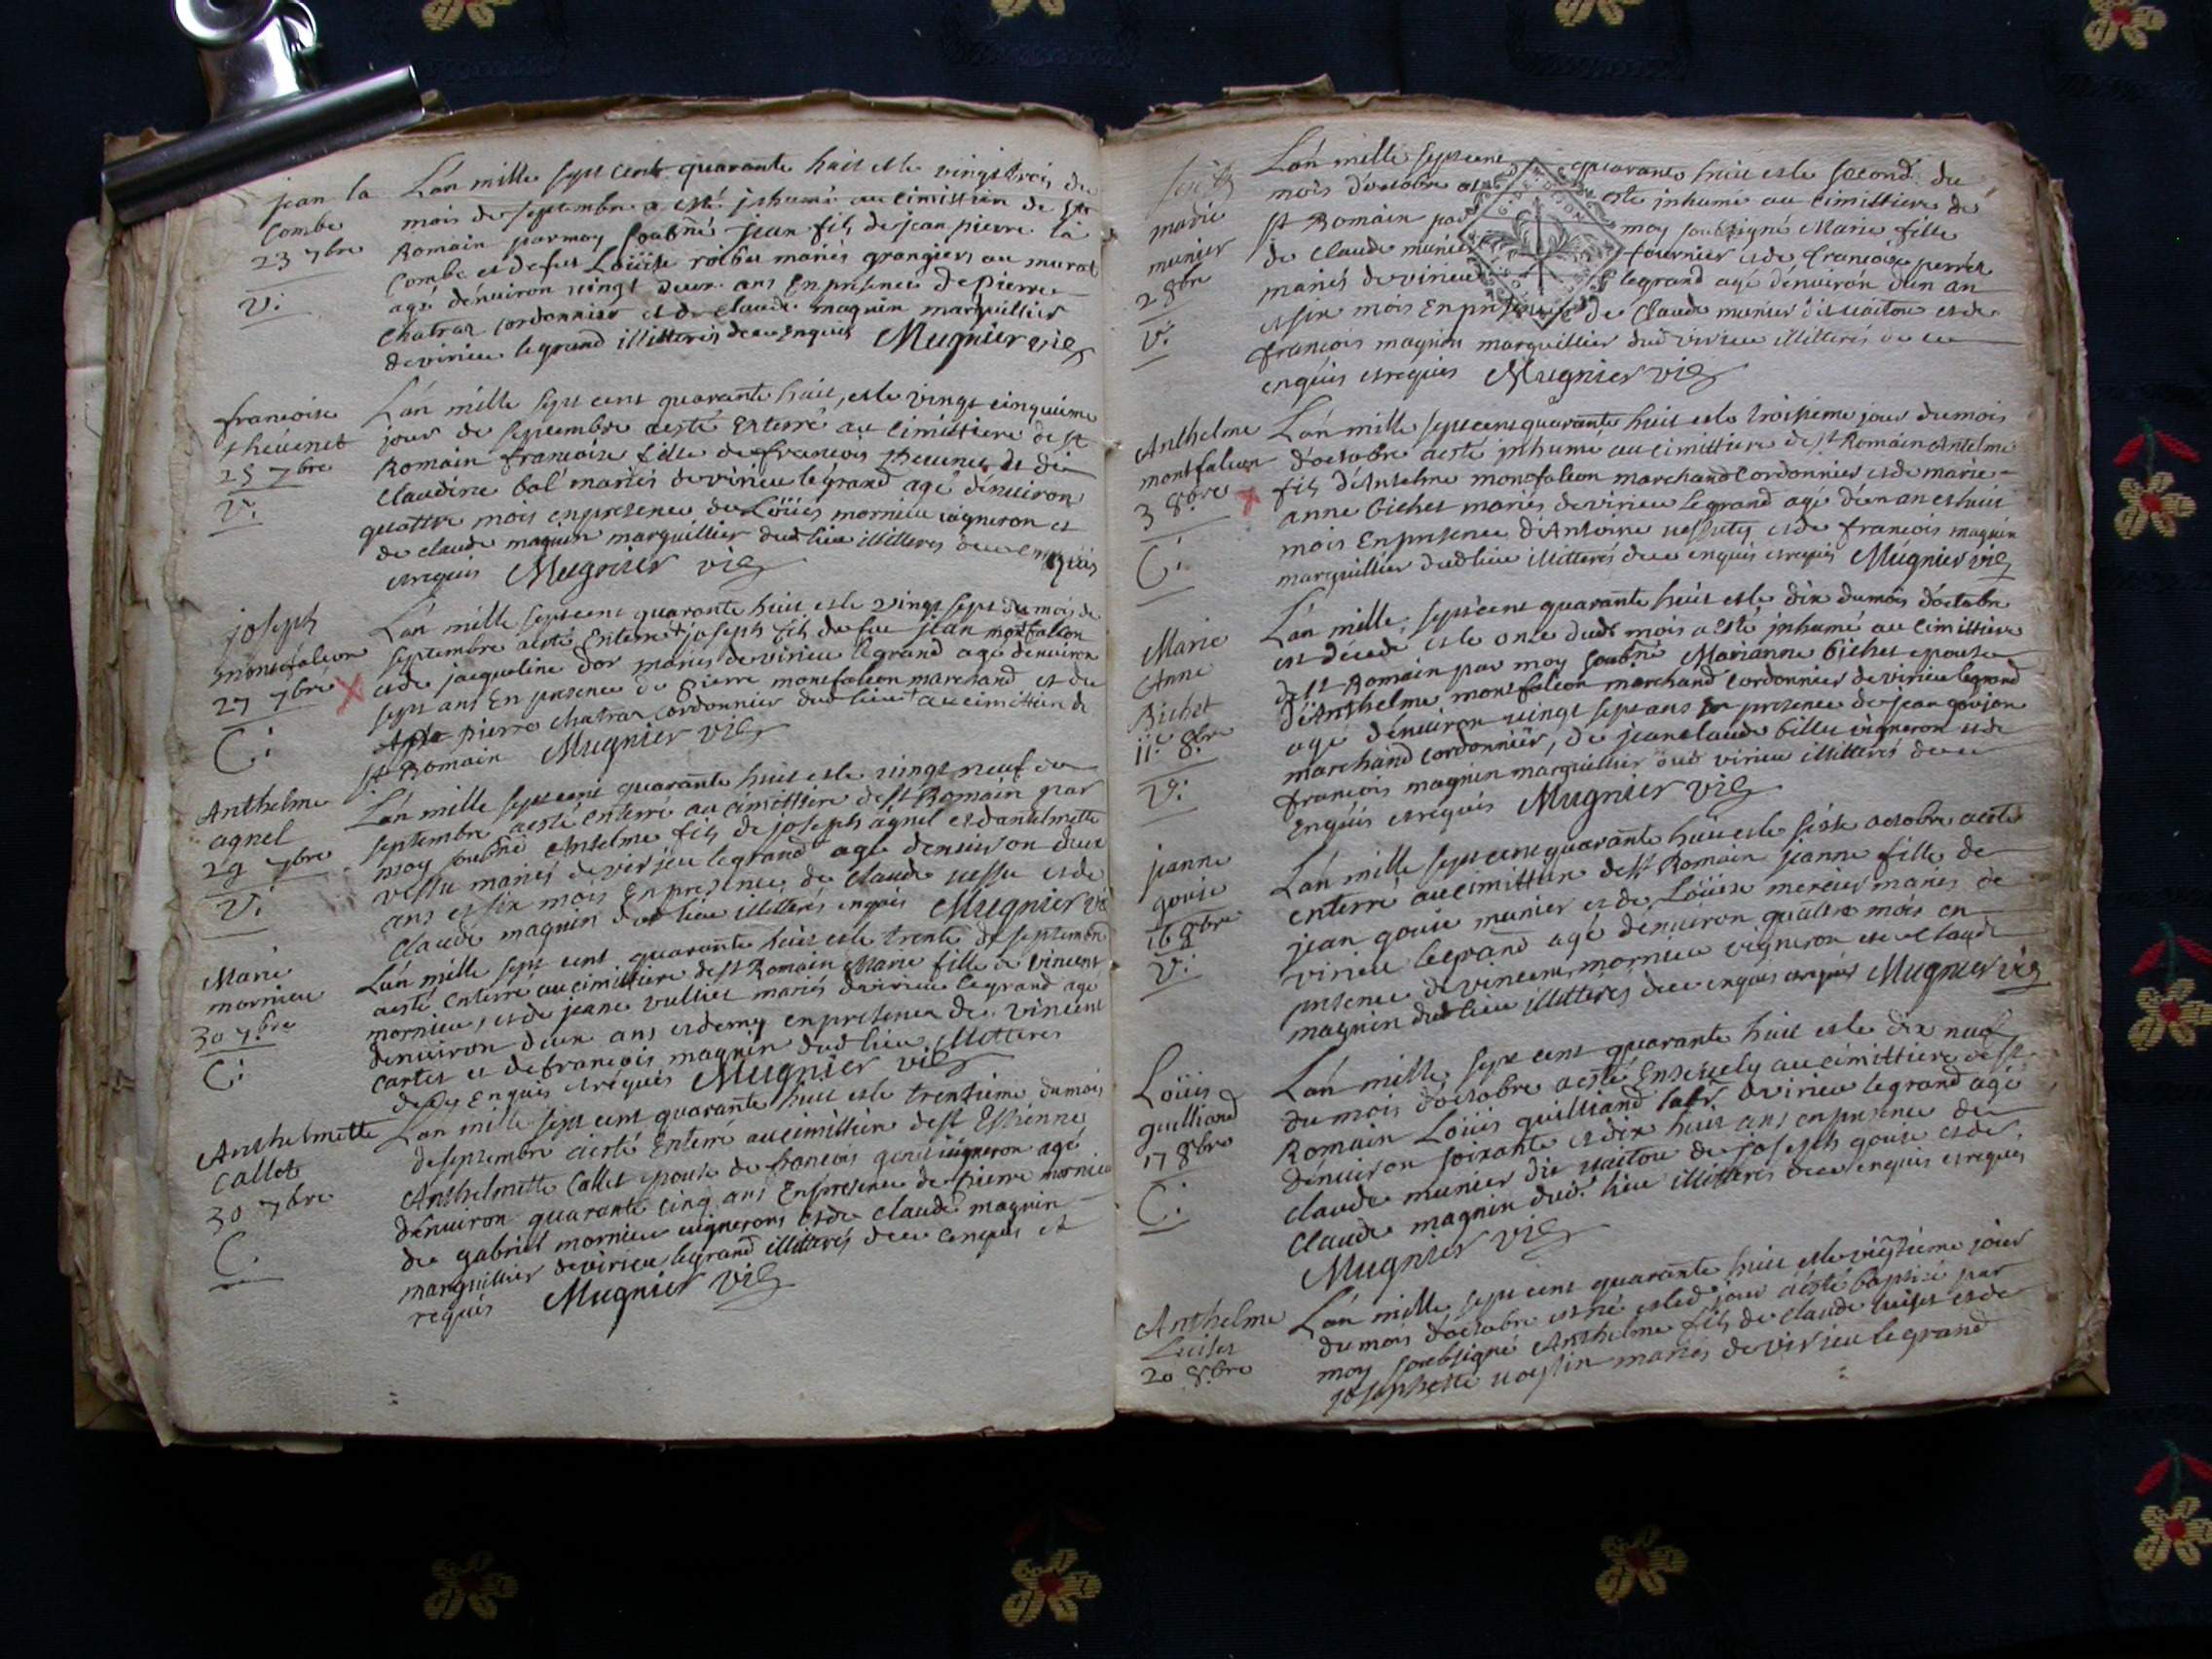 jean la
Combe
23 7bre
V.
L'an mille sept cent quarante huit et le vingt trois du
mois de septembre a esté jnhumé au cimittiere de St
Romain par moy soubné jean fils de jean pierre la
Combe et de feu Loüise mariés grangiers au mural
agé d'enuiron vingt deux ans En presence de Pierre
Chatrar cordonnier et de Claude magnin marguillier
de virieu le grand illitterés de ce Enquis Mugnier vic
francoise
theuenet
25 7bre
V.
L'an mille sept cent quarante huit, et le vingt cinquieme
jour de septembre a esté Enterré au cimittiere de St
Romain francoise fille de francois theuenet et de
Claudine bal mariés de virieu le grand agé d'enuiron
quattre mois en presence de Loüis mornieu uigneron et
de claude magnin marguillier dud lieu illitteres de ce enquis
et requis Mugnier vic
joseph
montfalcon
27 7bre
C.
L'an mille sept cent quarante huit et le vingt sept du mois de
septembre a esté Enterré + joseph fils de feu jean montfalcon
et de jacqueline d'or mariés de virieu le grand agé d'enuiron
sept ans En presence de Pierre montfalcon marchand et de
pierre chatrar cordonnier dud lieu + au cimittiere de
St Romain Mugnier vic
Anthelme
agnel
29 7bre
V.
L'an mille sept cent quarante huit et le vingt neuf de
septembre a esté enterré au cimittiere de St Romain par
moy soubné Antelme fils de joseph agnel et d'antelmette
vessu mariés de virieu le grand agé d'enuiron deux
ans et six mois En presence de Claude uessu et de
Claude magnin dud lieu illitterés enquis Mugnier vic
Marie
mornieu
30 7bre
C.
L'an mille sept cent quarante huit et le trente de septembre
a esté Enterré au cimittiere de St Romain Marie fille de vincent
mornieu, et de jeane vulliet mariés de virieu le grand agé
d'enuiron deux ans et demy en presence de vincent
Cartet et de francois magnin dud lieu illitteres
de ce Enquis et requis Mugnier vic
Anthelmette
Callet
30 7bre
C.
L'an mille sept cent quarante huit et le trentieme du mois
de septembre a esté Enterré au cimittiere de St Estienne
Anthelmette Callet epouse de francois uigneron agé
d'enuiron quarante cinq ans En presence de pierre mornieu
de gabriel mornieu uignerons et de claude magnin
marguillier de virieu le grand illitterés de ce enquis et
requis Mugnier vic
marie
munier
2 8bre
V.
L'an mille sept cent quarante huit et le second du
mois d'octobre a esté jnhumé au cimittiere de
St Romain par moy soubsigné Marie fille
de Claude munier fournier et de francoise perret
mariés de virieu le grand agé d'enuiron d'un an
et six mois En presence de Claude munier dit uaitou et de
francois magnin marguillier dud virieu illitterés de ce
enquis et requis Mugnier vic
Anthelme
montfalcon
3 8bre
C.
L'an mille sept cent quarante huit et le troisieme jour du mois
d'octobre a esté jnhumé au cimittiere de St Romain Antelme
fils d'Antelme montfalcon marchand Cordonnier et de marie
anne bichet mariés de virieu le grand agé d'un an et huit
mois En presence d'Antoine et de francois magnin
marguillier dud lieu illitterés de ce enquis et requis Mugnier vic
Marie
Anne
Bichet
11e 8bre
V.
L'an mille, sept cent quarante huit et le dix du mois d'octobre
est décédé et le onze dudt mois a esté jnhumé au cimittiere
de St Romain par moy soubné Marianne bichet epouse
d'Anthelme montfalcon marchand Cordonnier de virieu le grand
agé d'enuiron vingt sept ans en presence de jean goujon
marchand cordonnier, de jeanclaude billu uigneron et de
francois magnin marguillier dud virieu illitterés de ce
Enquis et requis Mugnier vic
jeanne
gouise
16 8bre
V.
L'an mille sept cent quarante huit et le seize octobre a esté
enterré au cimittiere de St Romain jeanne fille de
jean gouise munier et de Loüise mercier mariés de
virieu le grand agé d'enuiron quattre mois en
presence de vincent mornieu vigneron et de Claude
magnin dud lieu illitterés de ce enquis et requis Mugnier vic
Loüis
guilliand
17 8bre
C.
L'an mille, sept cent quarante huit et le dix neuf
du mois d'octobre a esté Enseuely au cimittiere de St
Romain Loüis guilliand labr. de virieu le grand agé
d'enuiron soixante et dix huit ans en presence de
Claude munier dit uaitou de joseph gouise et de
Claude magnin dud. lieu illitterés de ce enquis et requis
Mugnier vic
Anthelme
Luiset
20 8bre
L'an mille sept cent quarante huit et le vigtieme jour
du mois d'octobre est né et led jour a esté baptisé par
moy soubsigné Anthelme fils de claude luiset et de
josephette uoysin mariés de virieu le grand